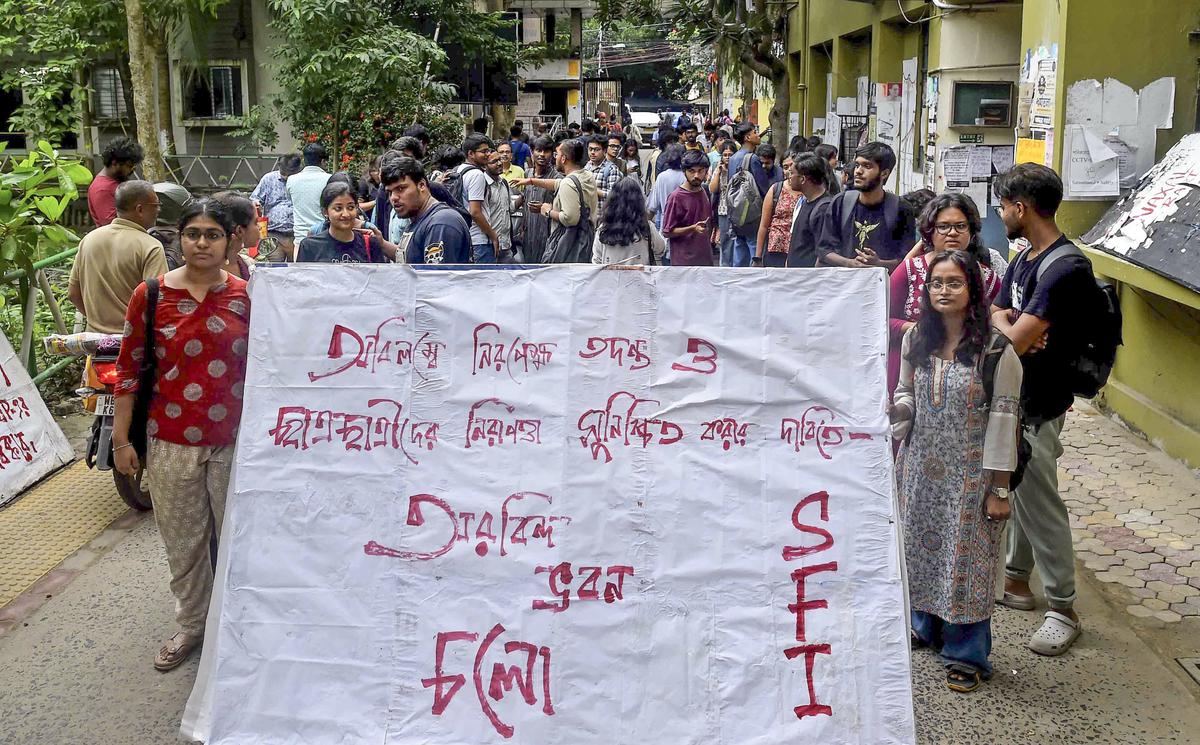 অবিলম্বে নিরপেক্ষ তদন্ত ও
ছাত্রছাত্রীদের নিরাপত্তা সুনিশ্চিত করার দাবিতে -
অরবিন্দ
ভবন
চলো
SFI
CCTV